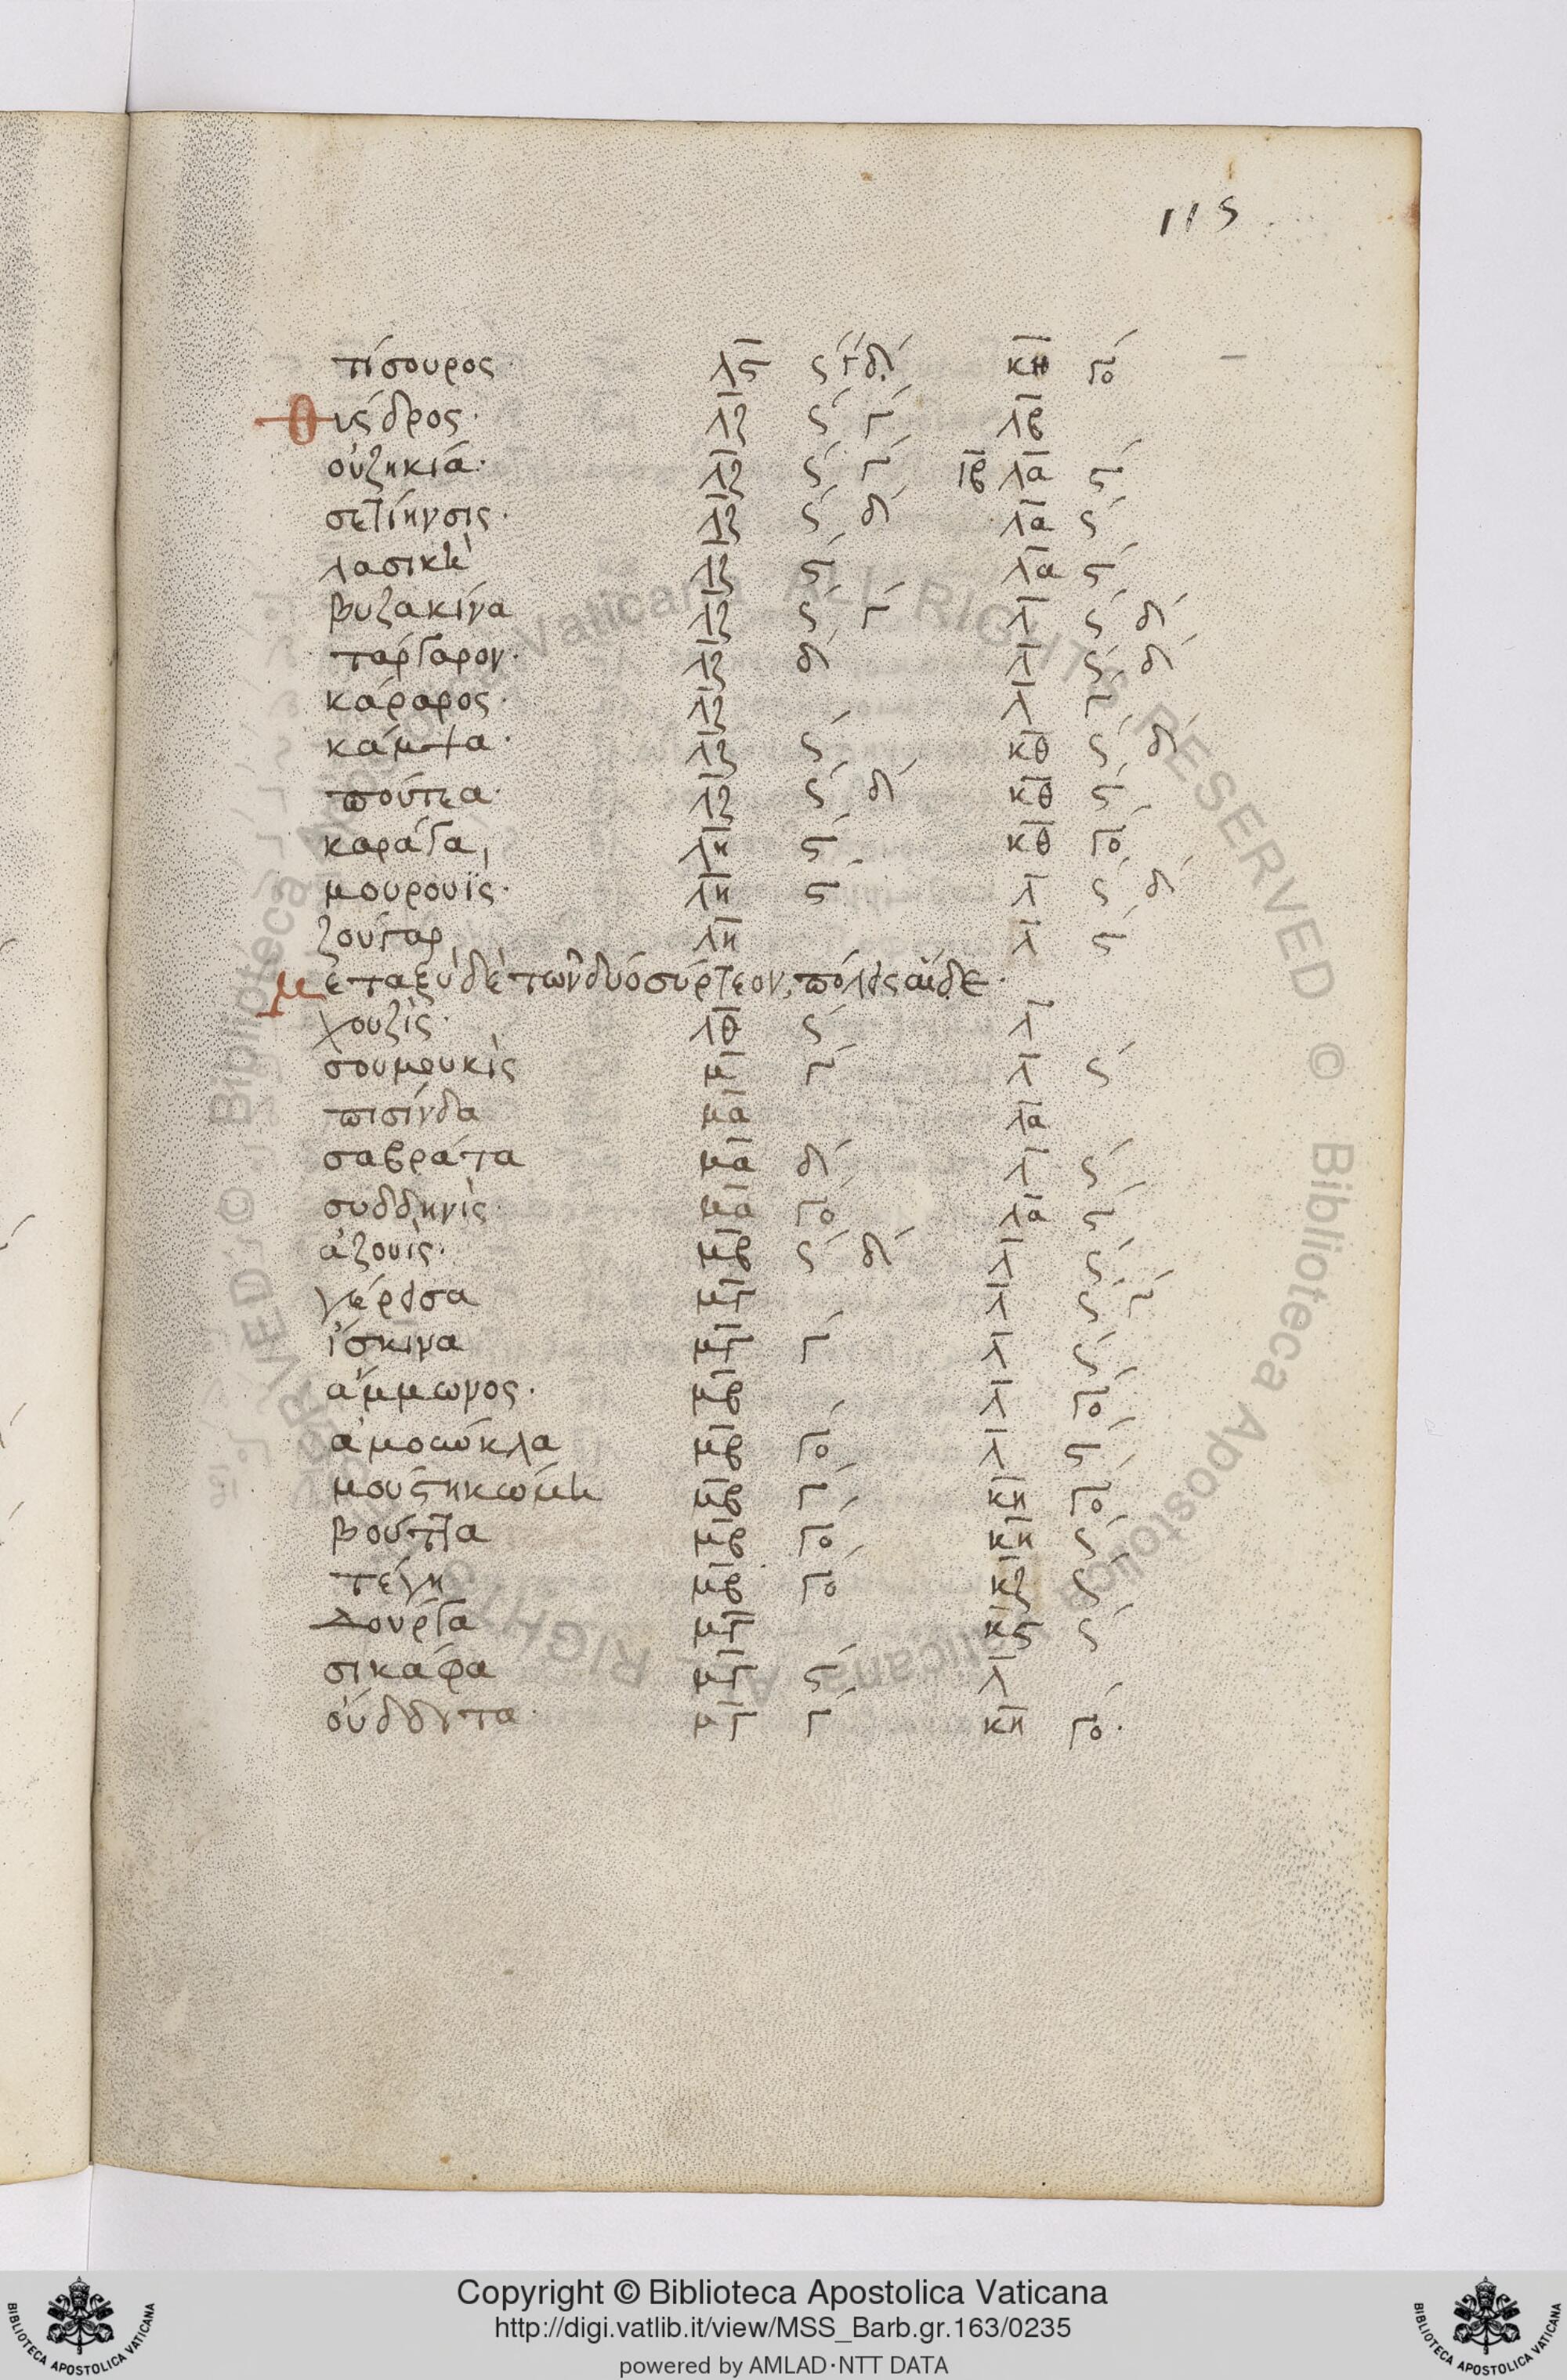 115
τίσουρος· λϛ ϛ´ γ´ δ´ κη γο´
Θίςδρος· λζ ϛ´ γ´ λβ
οὐζηκιά· λζ ϛ´ γ´ ιβ λα ϛ´
σετίηνσις· λζ ϛ´ δ´ λα ϛ´
λασικὴ λζ ϛ´ λα ϛ´
βυζακίνα λζ ϛ´ γ´ λ ϛ´ δ´
τάργαρον· λζ δ´ λ ϛ´ δ´
κάραρος· λζ λ γ´
κάμψα· λζ ϛ´ κθ ϛ´ δ´
πούτεα· λζ ϛ´ δ´ κθ ϛ´
καράγα, λη ϛ´ κθ γο´
μουρουΐς· λη ϛ´ λ ϛ´ δ´
ζούγαρ λη λ ϛ´
μεταξὺ δὲ τῶν δύο σύρτεον, πόλεις αἵδε·
χουζὶς· λθ ϛ´ λ
σουμρυκὶς μ γ´ λ ϛ´
πισίνδα μα λα
σαβράτα μα δ´ λ ϛ´
συδδηνὶς· μα γο´ λα ϛ´
ἀζουὶς· μβ ϛ´ δ´ λ ϛ´
γέρεισα μγ λ ϛ´ γ´
ἴσκινα μγ γ´ λ ϛ´
ἄμμωνος· μβ λ γο´
ἀμοώκλα μβ γο´ λ ϛ´
μούςηκώμη μβ γ´ κη γο´
βούττα μβ γο´ κη ϛ´
τέγη μβ γο´ κζ ϛ´
Δούργα μγ κϛ ϛ´
σικάφα μγ ϛ´ λ
οὐδδιτα· μγ γ´ κη γο´·
Copyright © Biblioteca Apostolica Vaticana
http://digi.vatlib.it/view/MSS_Barb.gr.163/0235
powered by AMLAD·NTT DATA
BIBLIOTECA APOSTOLICA VATICANA
BIBLIOTECA APOSTOLICA VATICANA